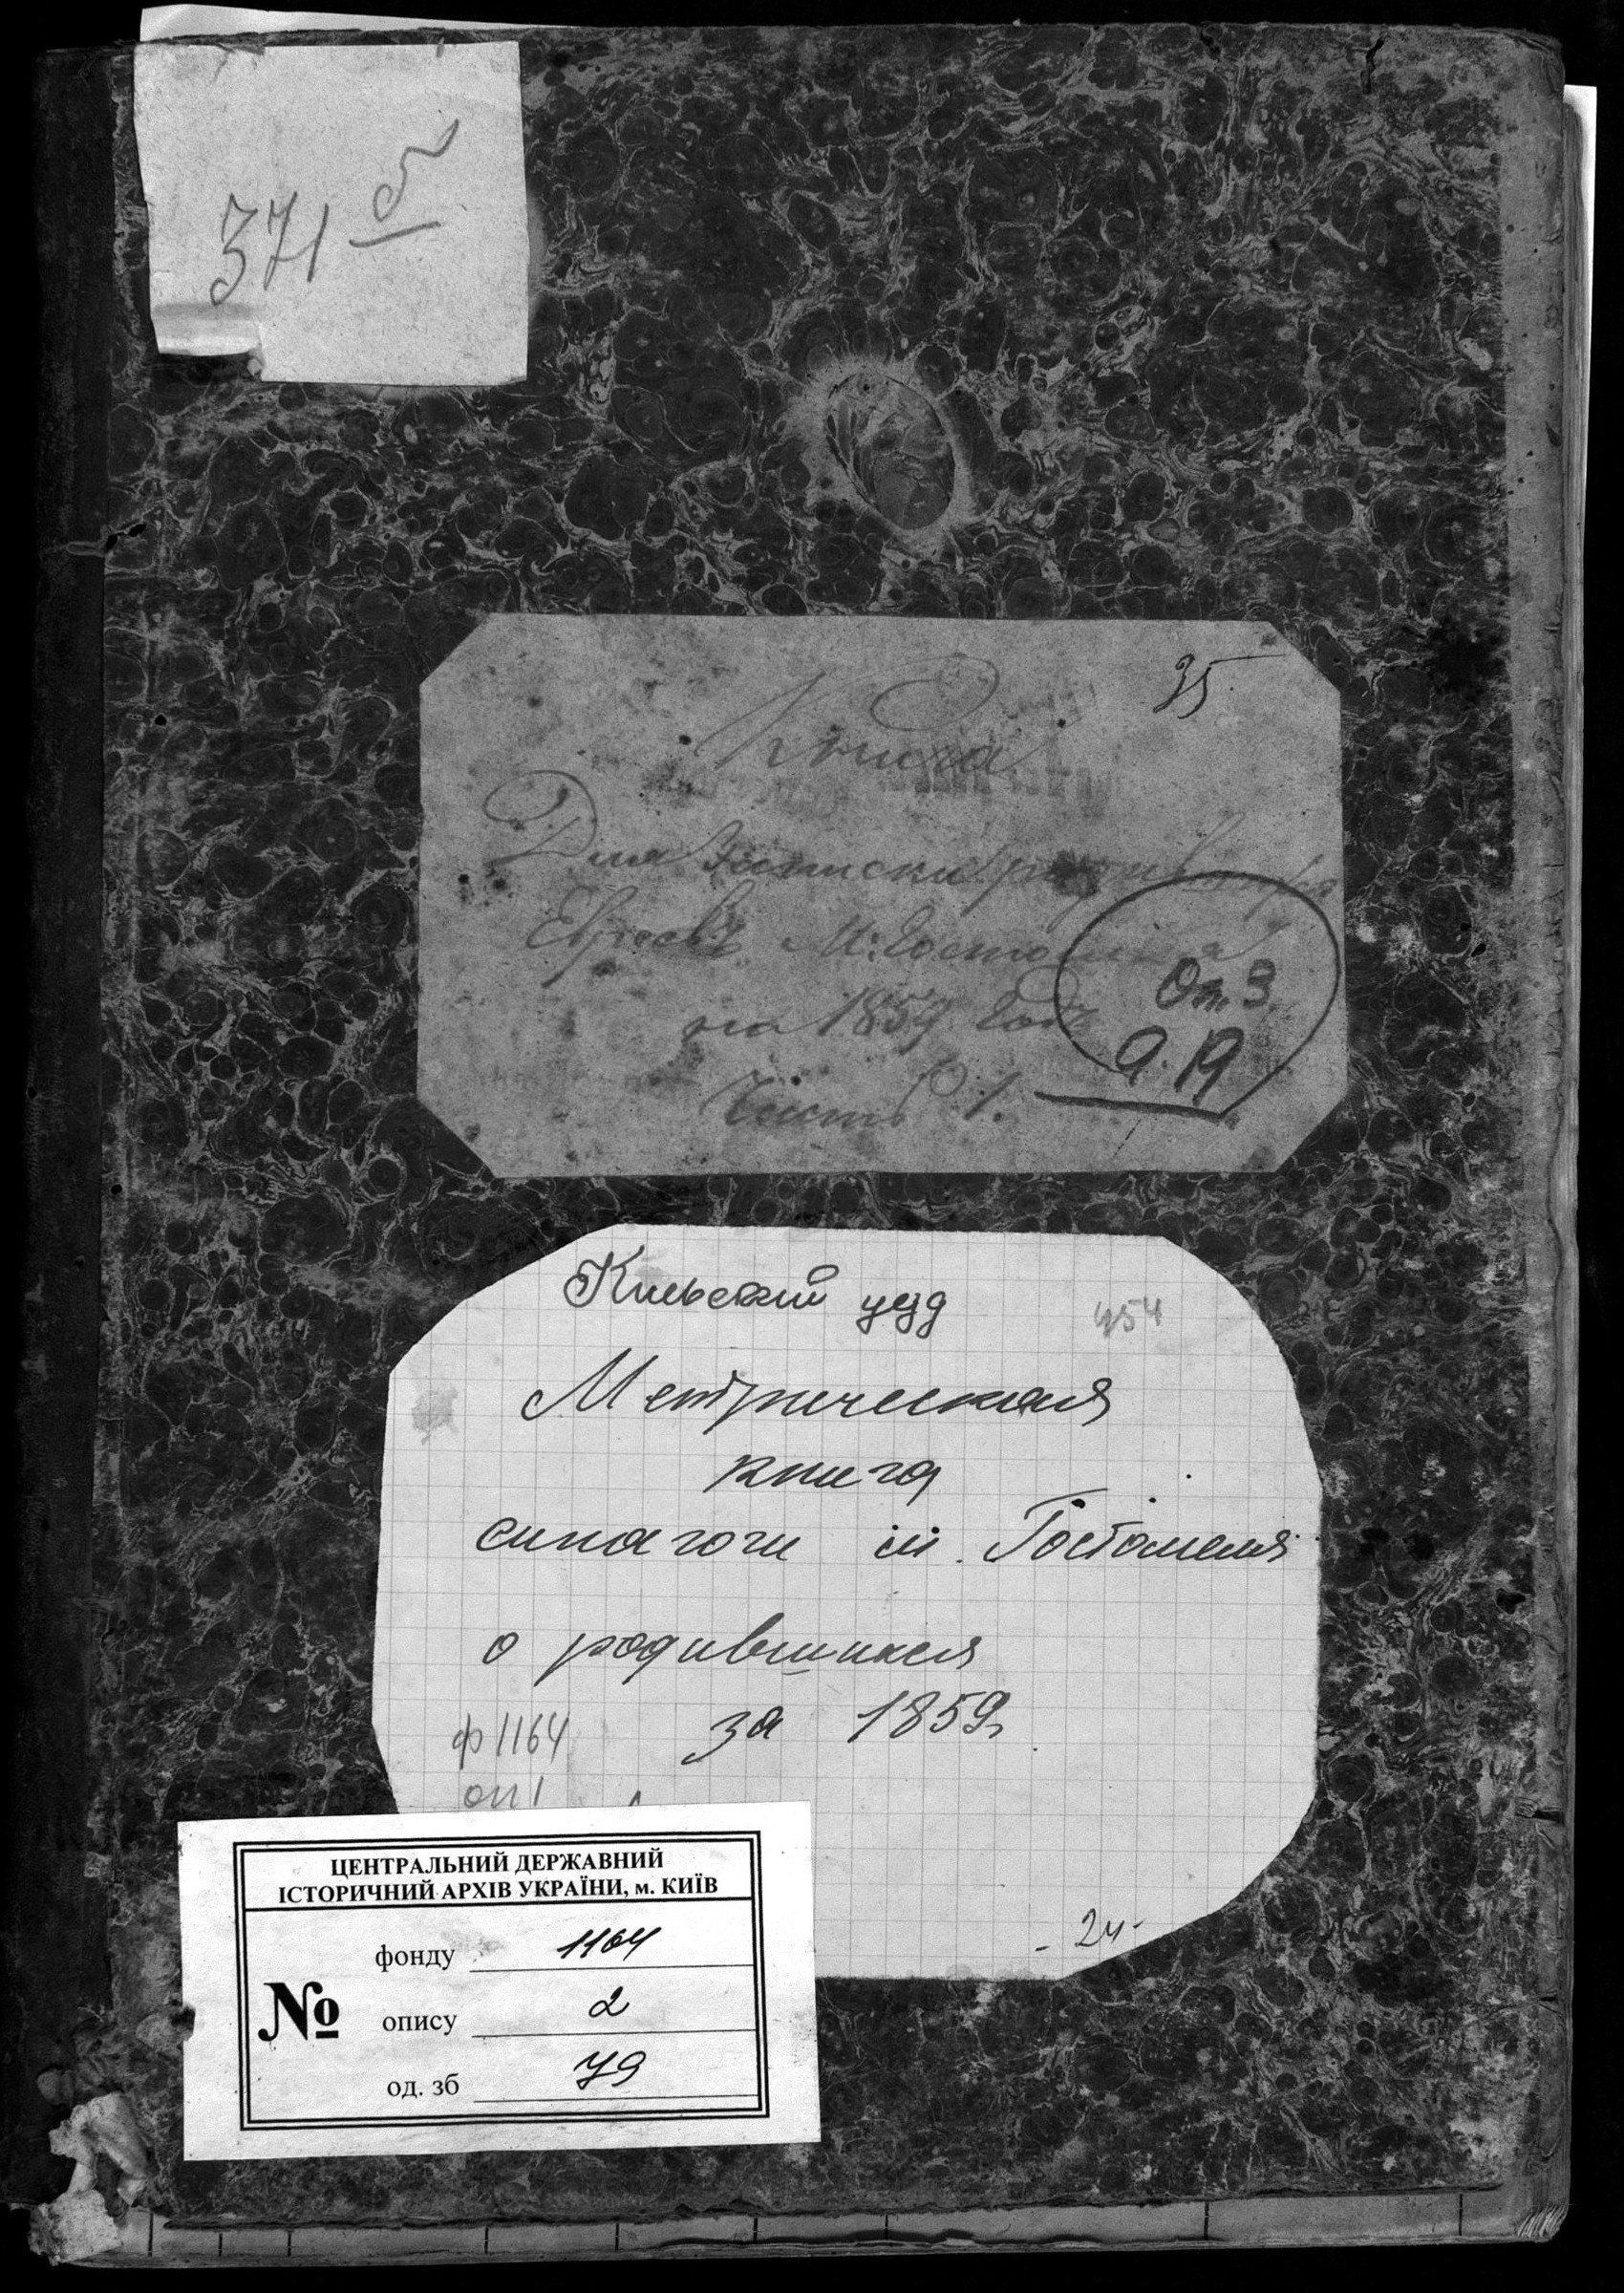 371 б
35
Книга
Для записки
Евреевъ М: Гостомля
на 1859 Годъ
Часть 1.
Оп. 3
Киевский уезд
Метрическая
книга
синагоги м. Гостомеля
о родившихся
за 1859г
ф 1164
оп 1
- 24 -
ЦЕНТРАЛЬНИЙ ДЕРЖАВНИЙ
ІСТОРИЧНИЙ АРХІВ УКРАЇНИ, м. КИЇВ
№
фонду 1164
опису 2
од. зб 79